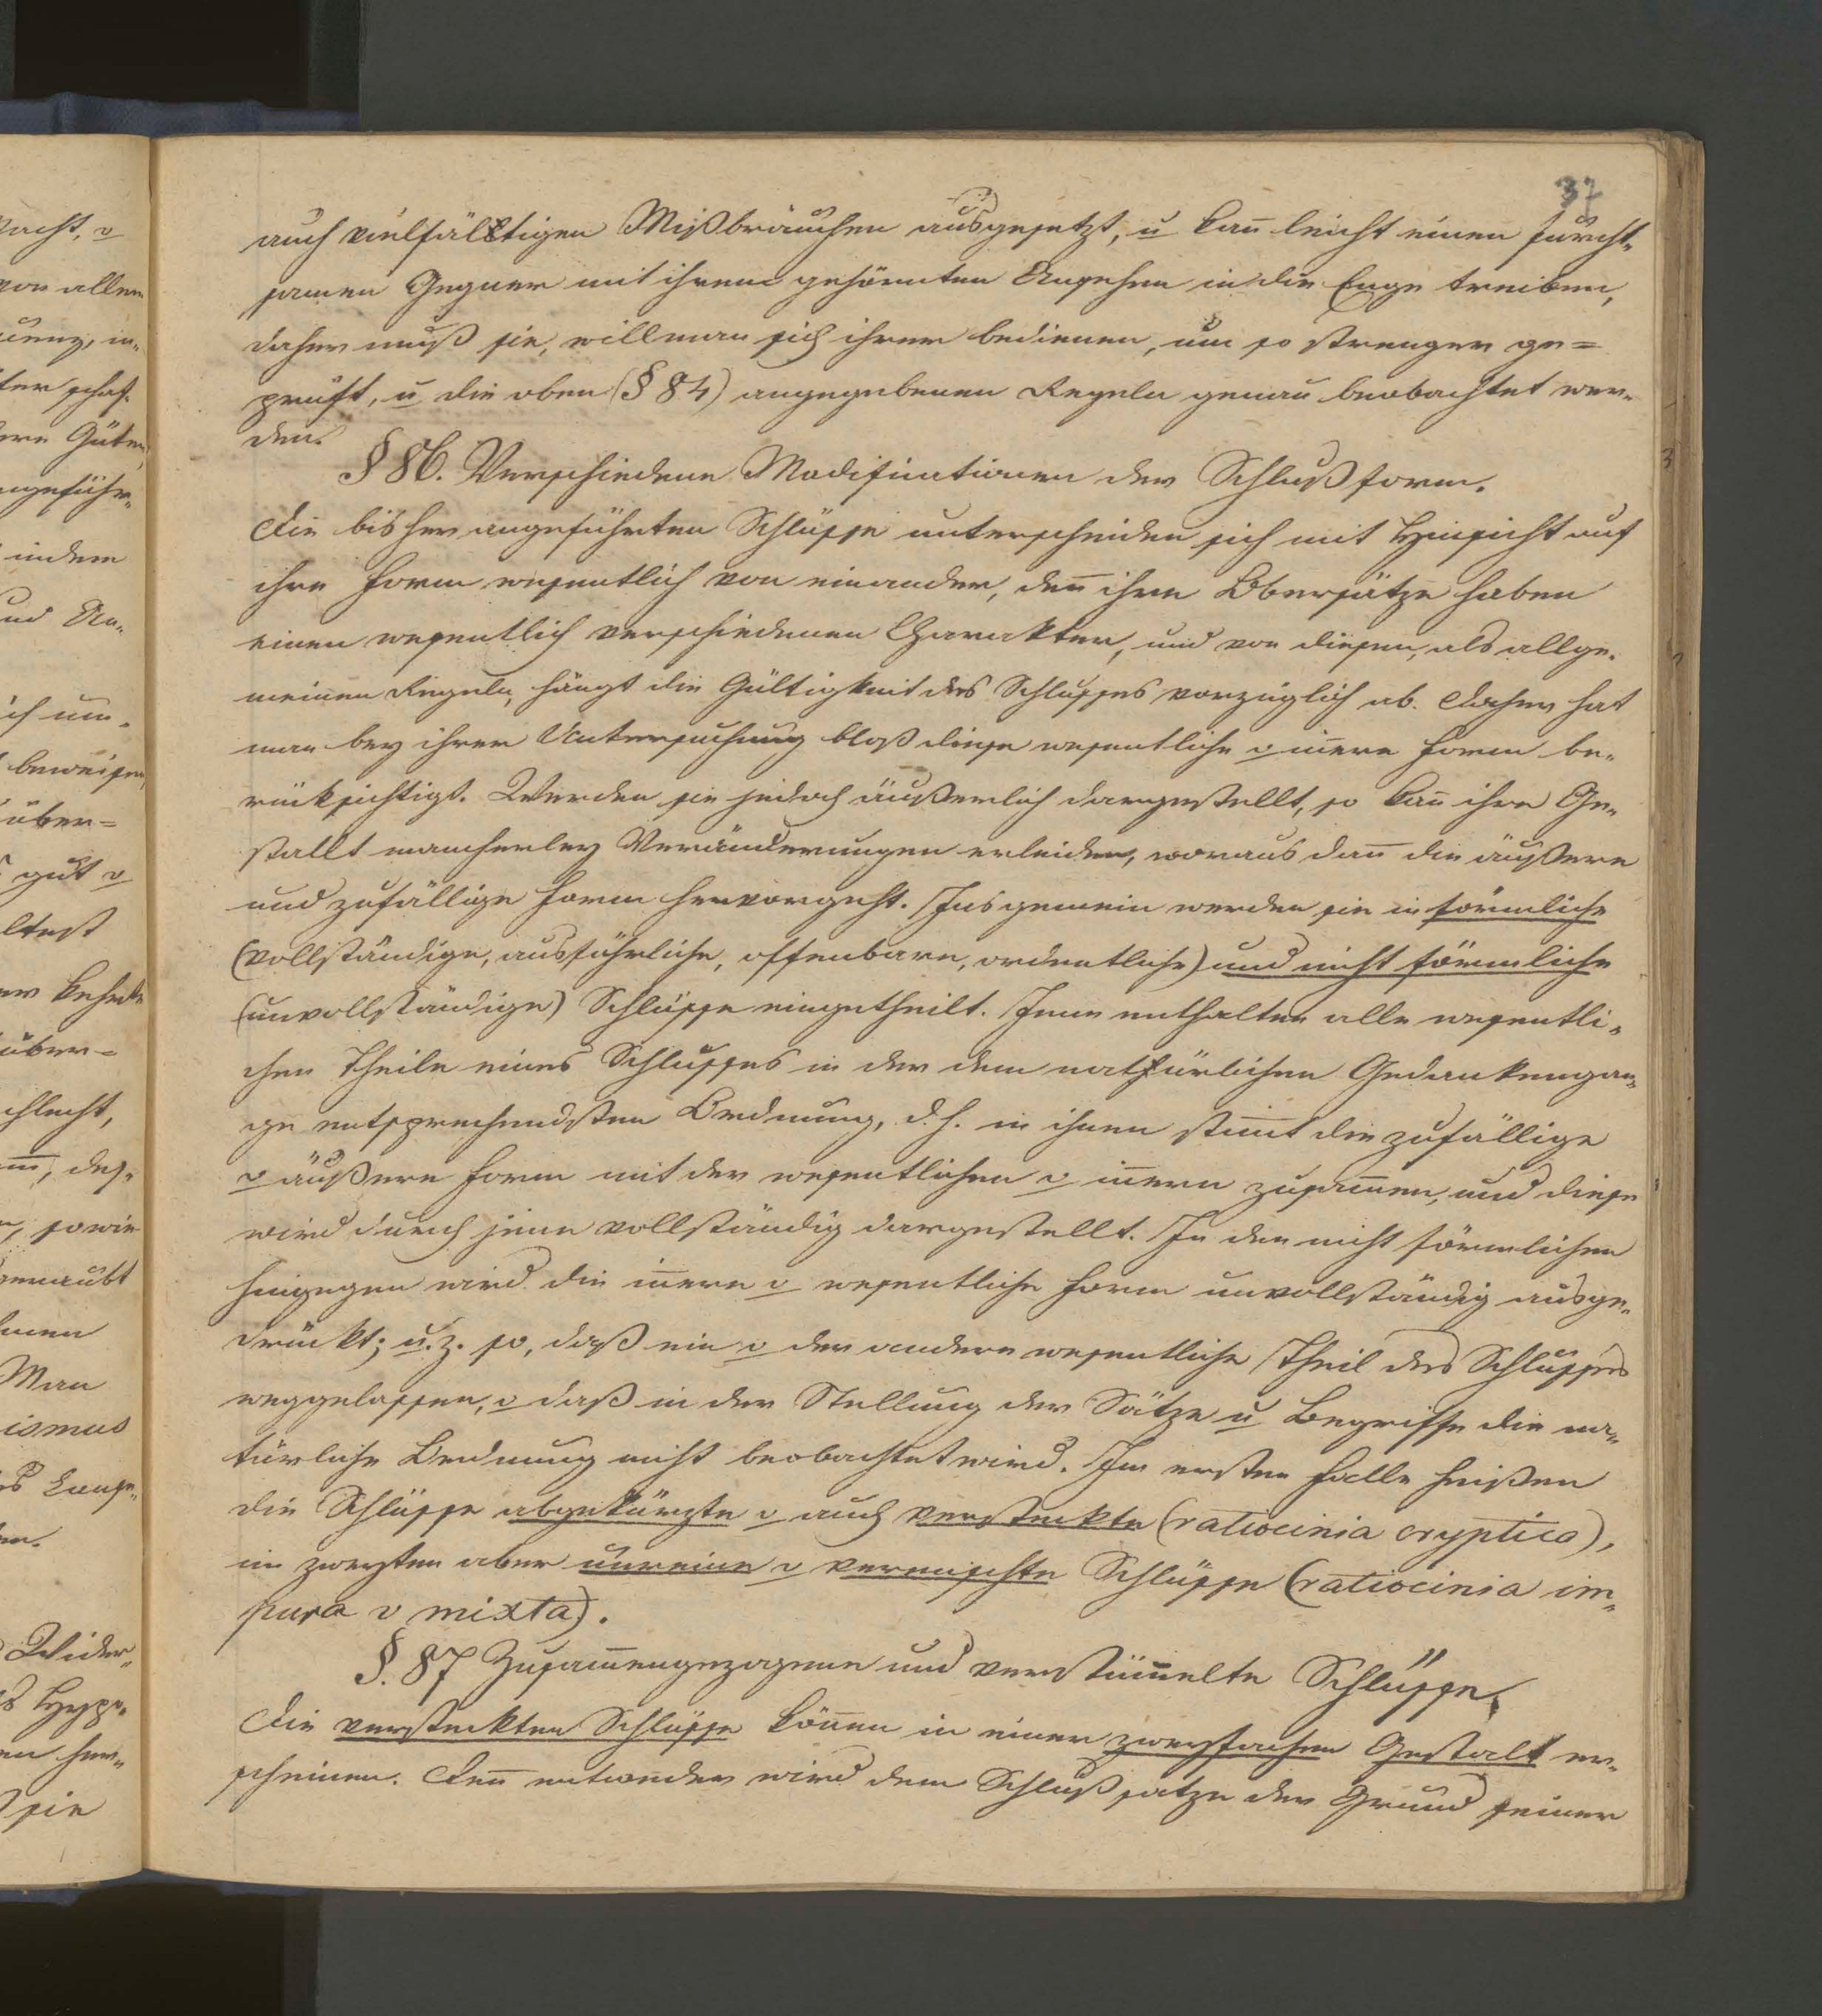 acht, o
von allem
ter schaf-
ere Güter,
ngeführ-
indem
und Un-
ich um-
beweisen,
über=
gut o
ltest
über=
chlecht,
, sowie
Man
ismus
Wider-
sie
37
auch vielfältigen Mißbräuchen ausgesetzt, u kan̄ leicht einen furcht-
samen Gegner mit ihrem gehörnten Ansehen in die Enge treiben,
daher muß sie, will man sich ihrer bedienen, um so strenger ge=
prüft, u die oben (§ 84) angegebenen Regeln genau beobachtet wer-
den.
§ 86. Verschiedene Modificationen der Schlußform.
Die bisher angeführten Schlüsse unterscheiden sich mit Hinsicht auf
ihre Form wesentlich von einander, den̄ ihre Obersätze haben
einen wesentlich verschiedenen Charakter, und von diesen, als allge-
meinen Regeln, hängt die Gültigkeit des Schlusses vorzüglich ab. Daher hat
man bey ihrer Untersuchung bloß diese wesentliche o in̄ere Form be-
rücksichtigt. Werden sie jedoch äußerlich dargestellt, so kan̄ ihre Ge-
stallt mancherley Veränderungen erleiden, woraus dan̄ die äußere
und zufällige Form hervorgeht. Insgemein werden sie in förmliche
(vollständige, ausführliche, offenbare, ordentliche) und nicht förmliche
(unvollständige) Schlüsse eingetheilt. Jene enthalten alle wesentli-
chen Theile eines Schlusses in der dem natürlichen Gedankengan-
ge entsprechendsten Ordnung, d. h. in ihnen stim̄t die zufällige
o äußere Form mit der wesentlichen o in̄ern zusam̄en, und diese
wird durch jene vollständig dargestellt. In den nicht förmlichen
hingegen wird die in̄ere o wesentliche Form unvollständig ausge-
drückt; u. z. so, daß ein o der andere wesentliche Theil des Schlusses
weggelassen, o daß in der Stellung der Sätze u Begriffe die na-
türliche Ordnung nicht beobachtet wird. Im ersten Falle heißen
die Schlüsse abgekürzte o auch versteckte (ratiocinia cryptica),
im zweyten aber unreine o vermischte Schlüsse (ratiocinia im-
pura o mixta).
§. 87 Zusam̄engezogene und verstüm̄elte Schlüsse.
Die versteckten Schlüsse kön̄en in einer zweyfachen Gestalt er-
scheinen. Den̄ entweder wird dem Schlußsatze der Grund seiner